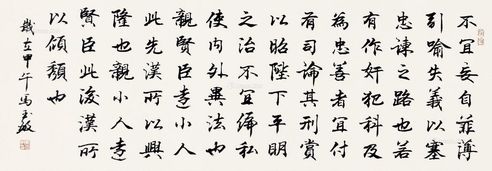 不宜妄自菲薄
引喻失義以塞
忠諫之路也若
有作奸犯科及
為忠善者宜付
有司論其刑賞
以昭陛下平明
之治不宜偏私
使內外異法也
親賢臣遠小人
此先漢所以興
隆也親小人遠
賢臣此後漢所
以傾頹也
歲在甲午馬